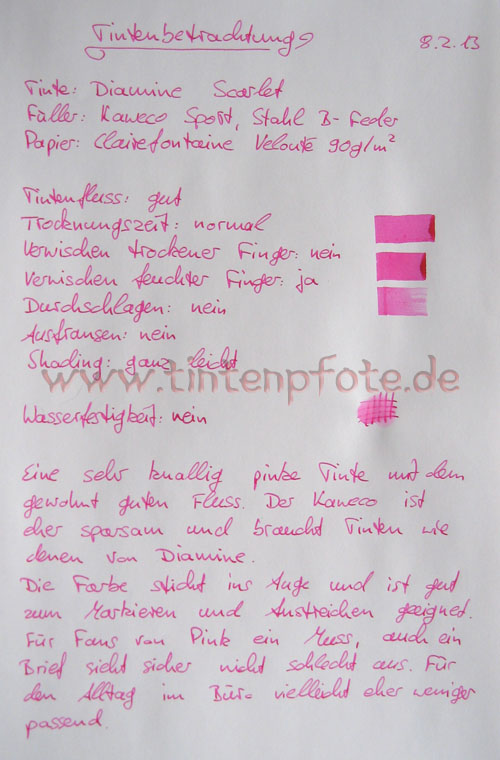 Tintenbetrachtung
8.2.13
Tinte: Diamine Scarlet
Füller: Kaweco Sport, Stahl B-Feder
Papier: Clairefontaine Velouté 90g/m²
Tintenfluss: gut
Trocknungszeit: normal
Verwischen trockener Finger: nein
Verwischen feuchter Finger: ja
Durchschlagen: nein
Ausfransen: nein
Shading: ganz leicht
www.tintenpfote.de
Wasserfestigkeit: nein
Eine sehr knallig pinke Tinte mit dem
gewohnt guten Fluss. Der Kaweco ist
eher sparsam und braucht Tinten wie
denen von Diamine.
Die Farbe sticht ins Auge und ist gut
zum Markieren und Anstreichen geeignet.
Für Fans von Pink ein Muss, auch ein
Brief sieht sicher nicht schlecht aus. Für
den Alltag im Büro vielleicht eher weniger
passend.